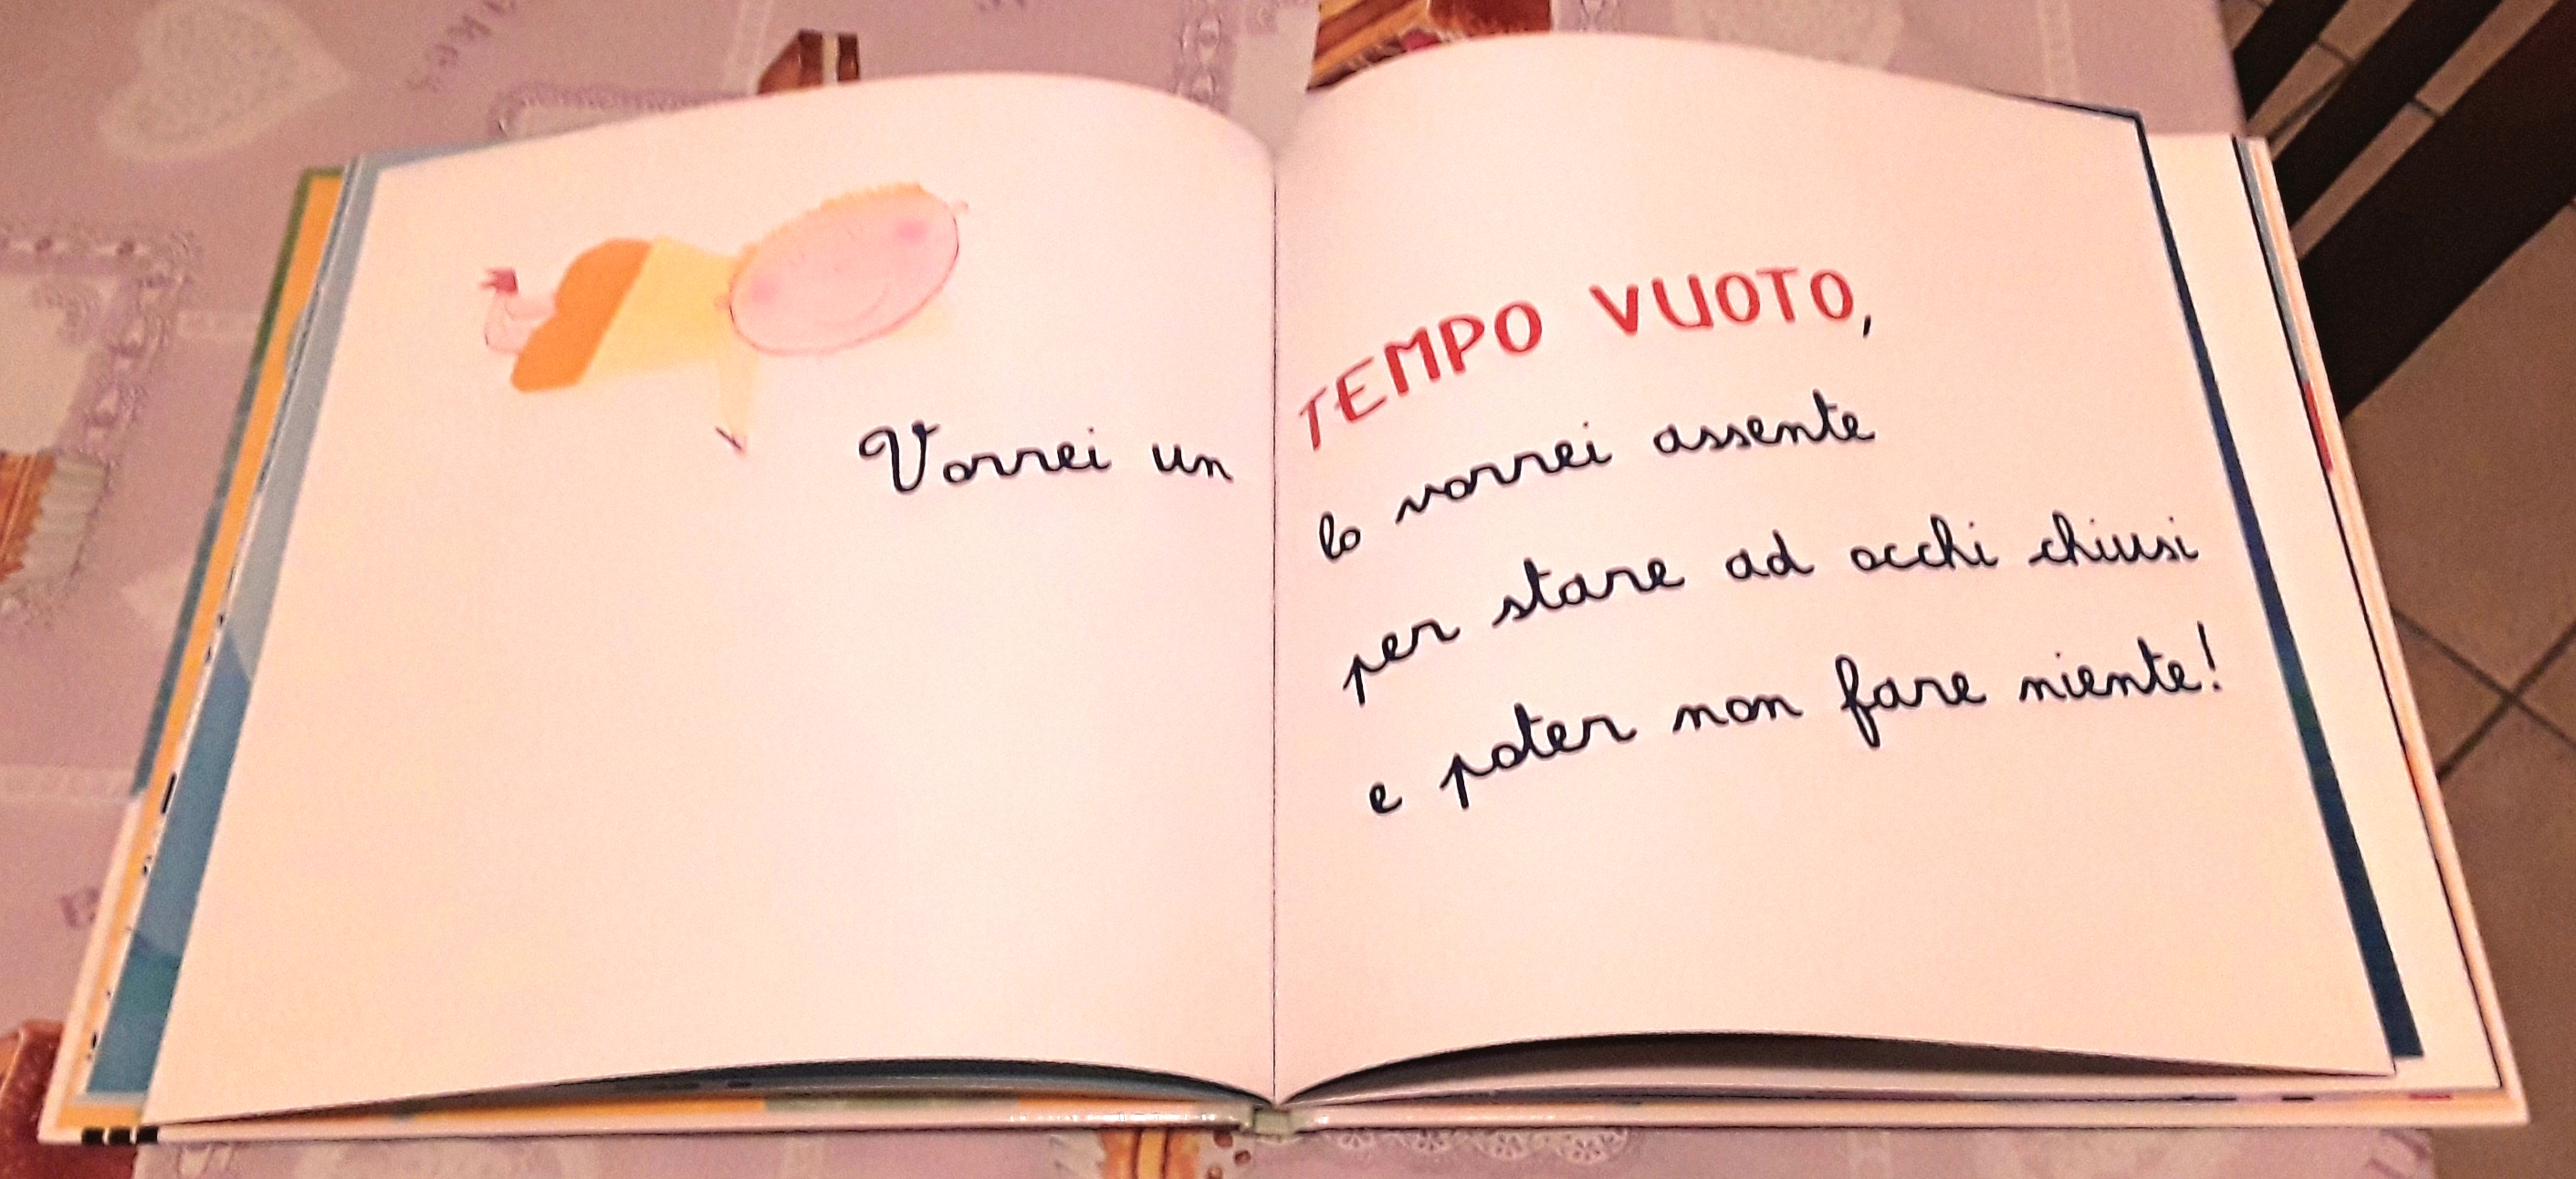 Vorrei un
TEMPO VUOTO,
lo vorrei assente
per stare ad occhi chiusi
e poter non fare niente!